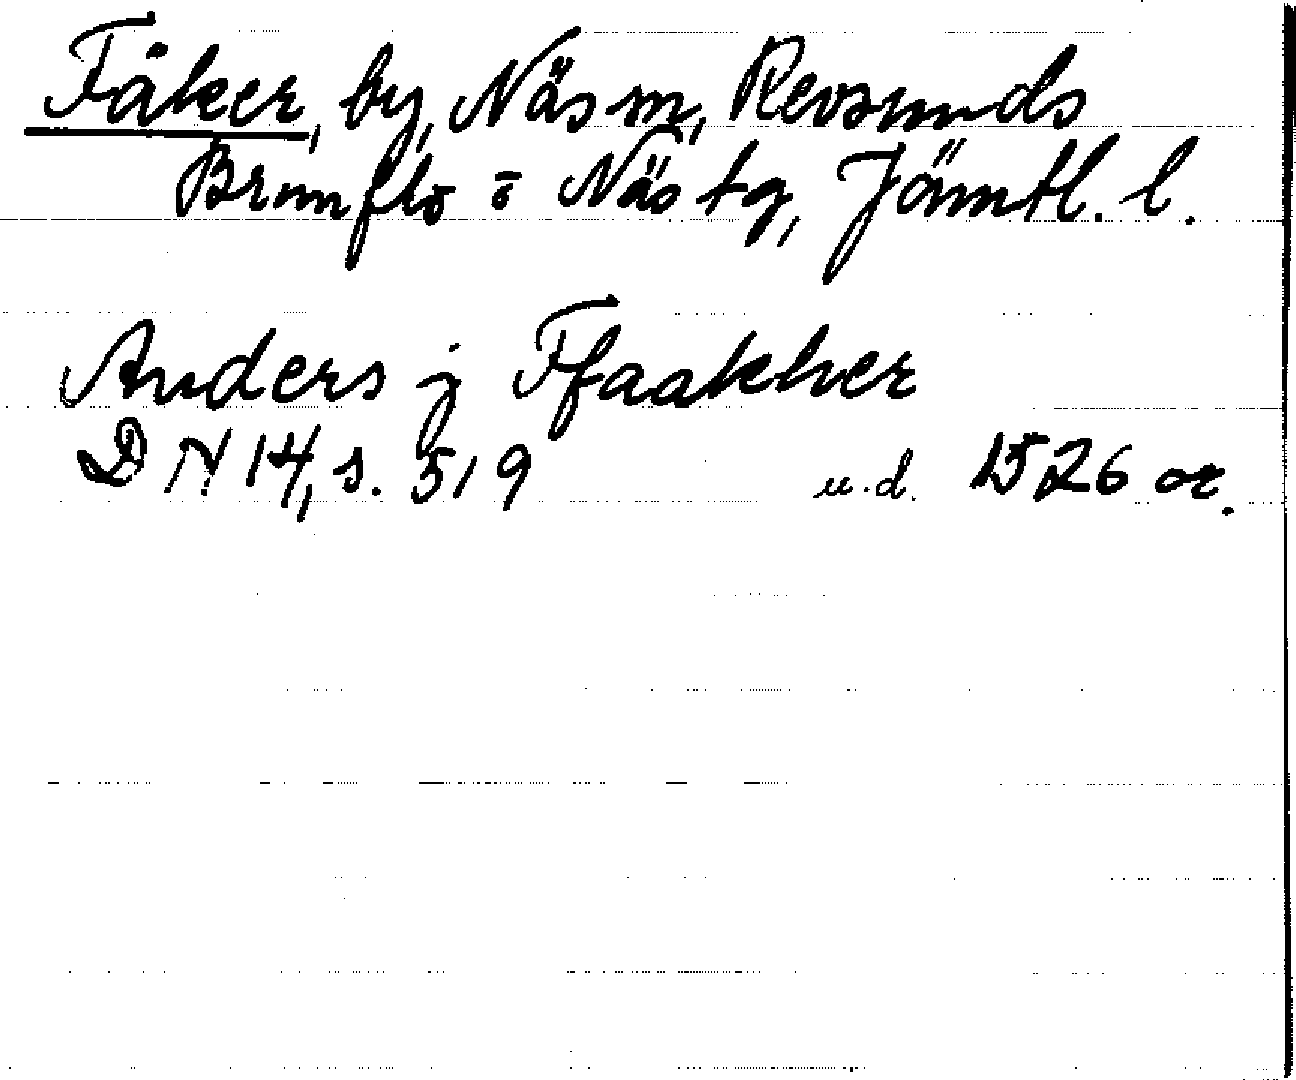 Fåker, by, Näs sn, Revsunds
Brunflo o Näs tg, Jämtl. l.
Anders j Ffaakher
DN 14, s. 519 u.d. 1526 or.